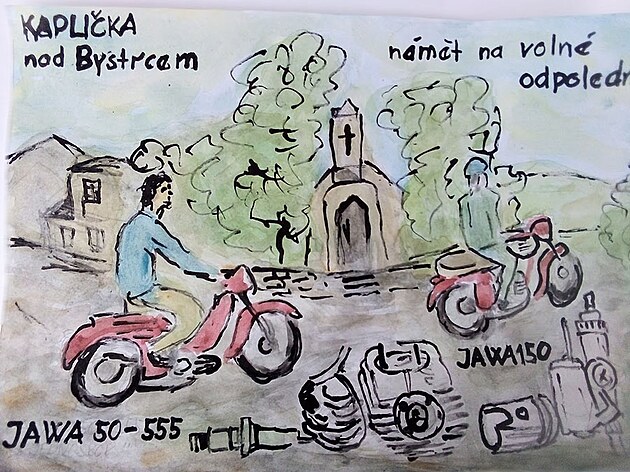 KAPLIČKA
nad Bystrcem
námět na volné
odpoledn
JAWA 150
JAWA 50-555